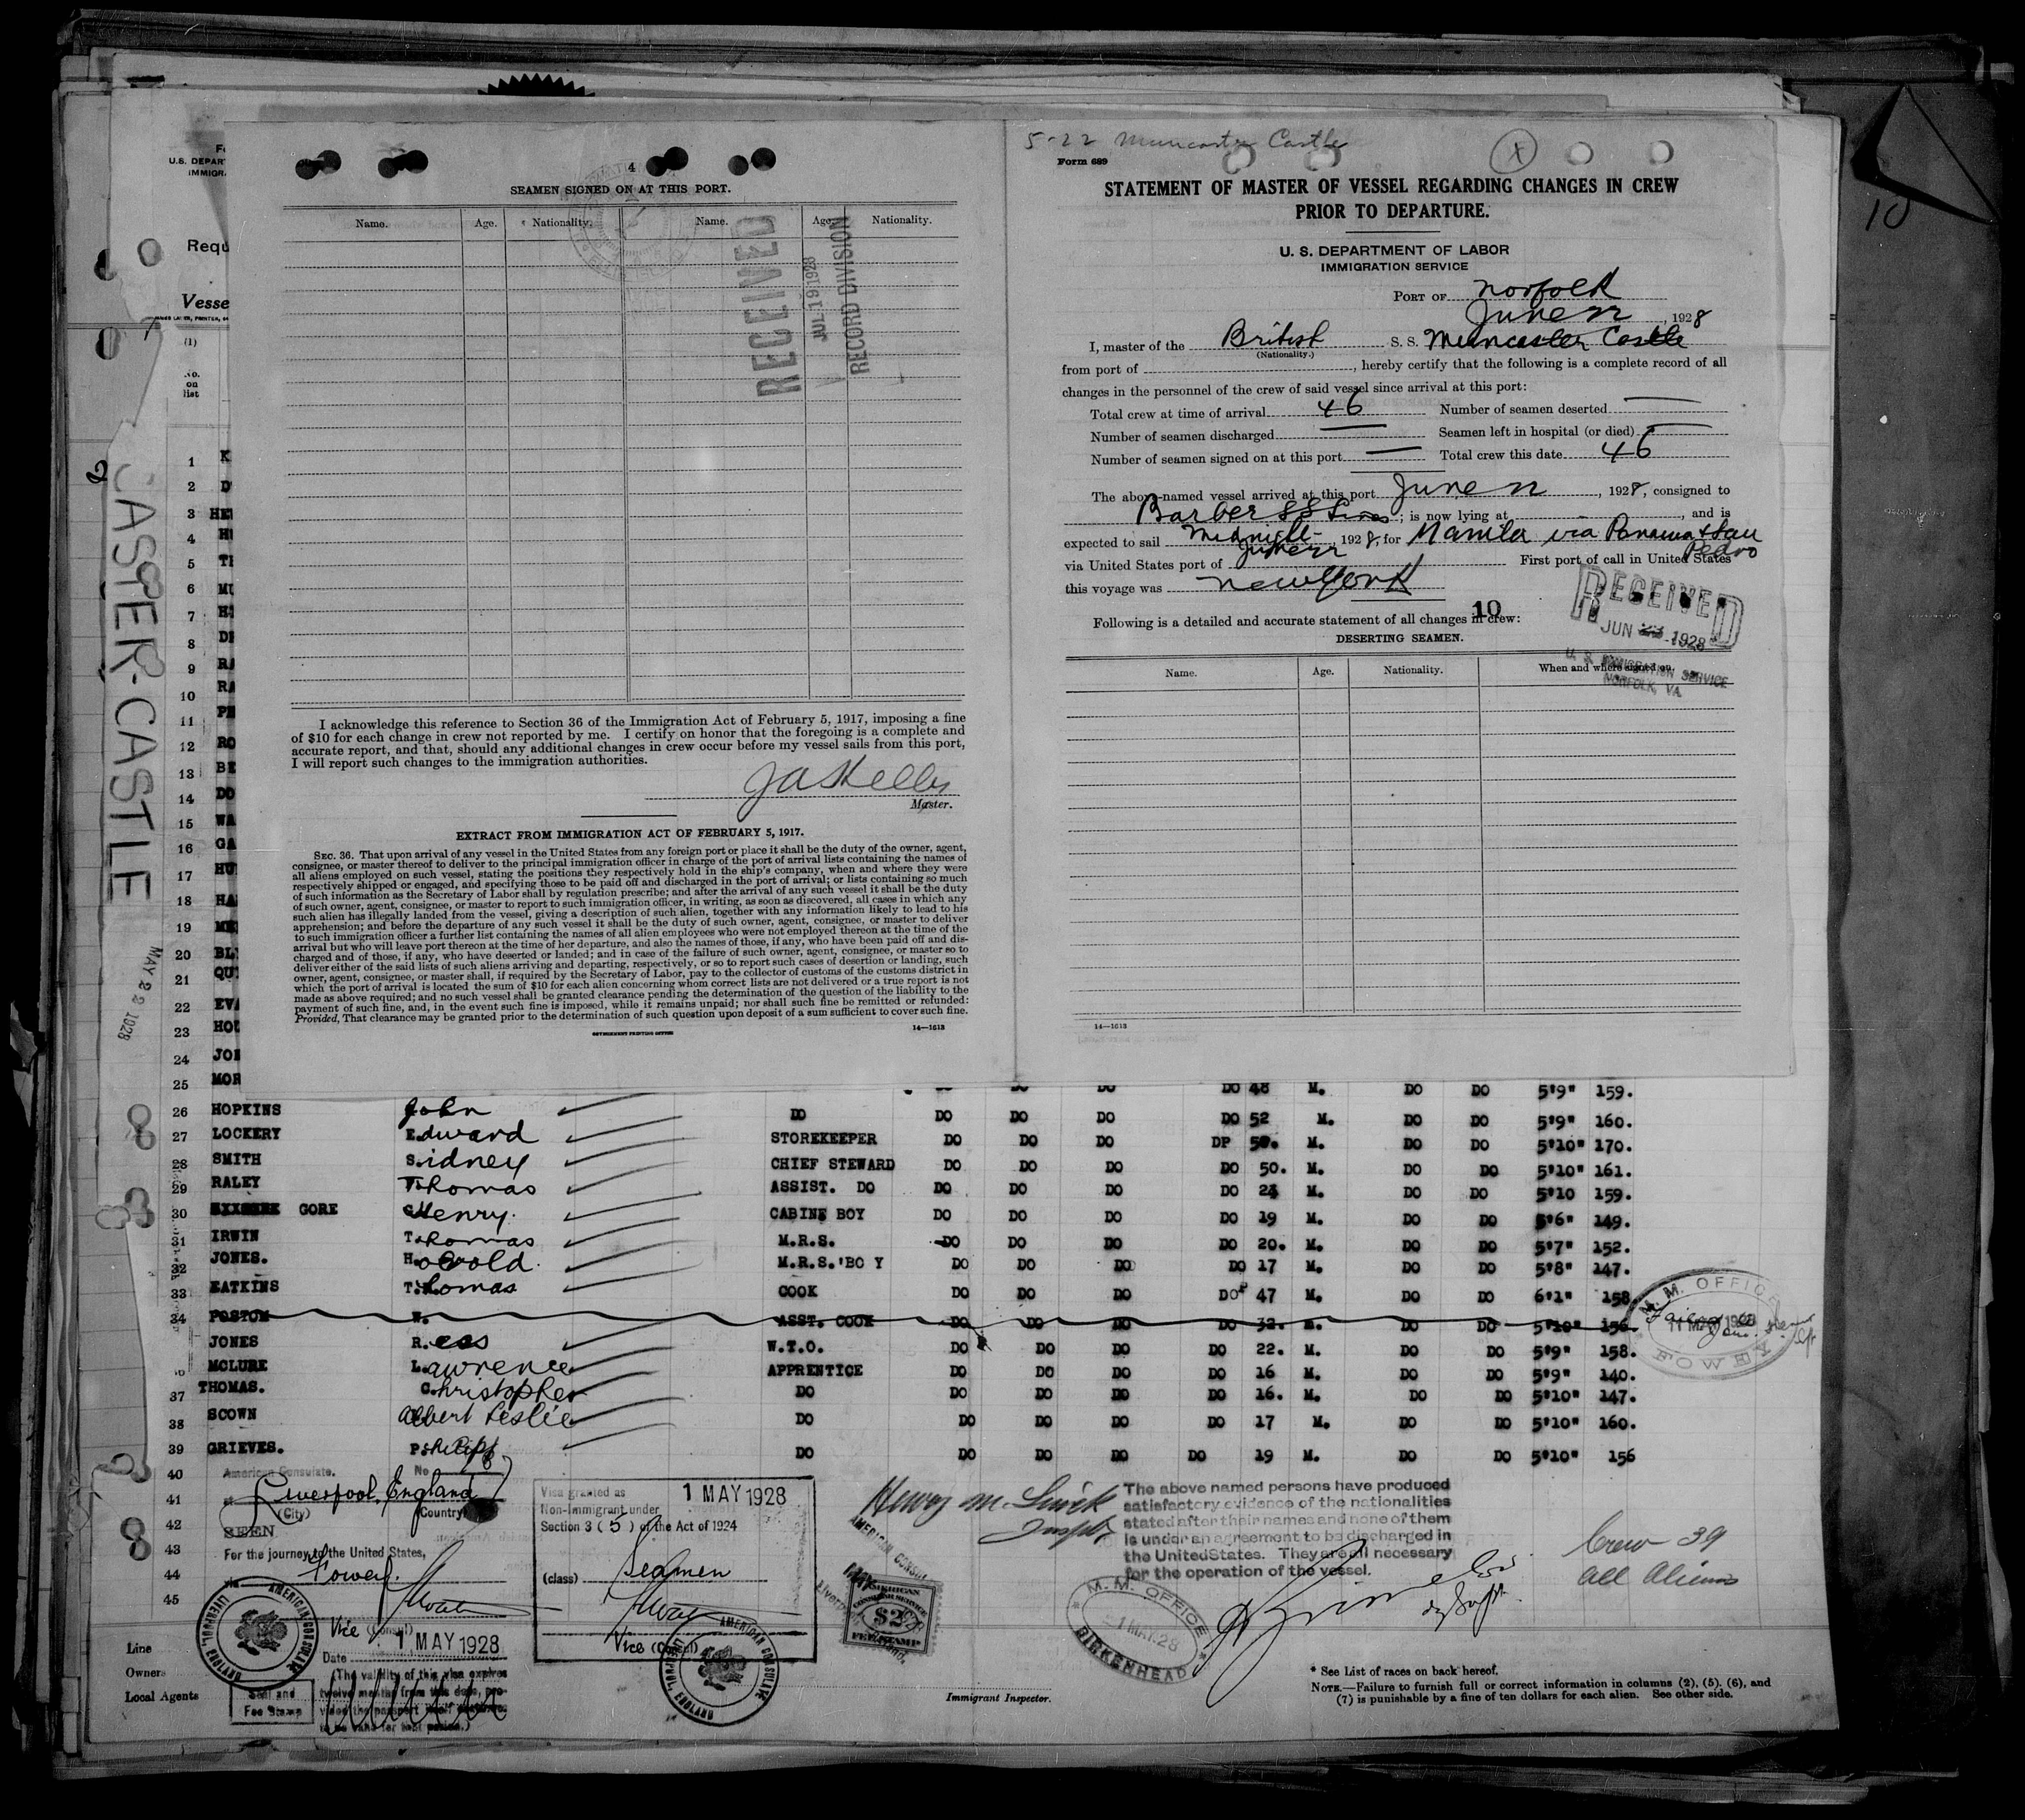 4
SEAMEN SIGNED ON AT THIS PORT.
Name. Age. Nationality. Name. Age. Nationality.
RECEIVED
JUL 19 1928
RECORD DIVISION
I acknowledge this reference to Section 36 of the Immigration Act of February 5, 1917, imposing a fine
of $10 for each change in crew not reported by me. I certify on honor that the foregoing is a complete and
accurate report, and that, should any additional changes in crew occur before my vessel sails from this port,
I will report such changes to the immigration authorities.
Master.
EXTRACT FROM IMMIGRATION ACT OF FEBRUARY 5, 1917.
SEC. 36. That upon arrival of any vessel in the United States from any foreign port or place it shall be the duty of the owner, agent,
consignee, or master thereof to deliver to the principal immigration officer in charge of the port of arrival lists containing the names of
all aliens employed on such vessel, stating the positions they respectively hold in the ship's company, when and where they were
respectively shipped or engaged, and specifying those to be paid off and discharged in the port of arrival; or lists containing so much
of such information as the Secretary of Labor shall by regulation prescribe; and after the arrival of any such vessel it shall be the duty
of such owner, agent, consignee, or master to report to such immigration officer, in writing, as soon as discovered, all cases in which any
such alien has illegally landed from the vessel, giving a description of such alien, together with any information likely to lead to his
apprehension; and before the departure of any such vessel it shall be the duty of such owner, agent, consignee, or master to deliver
to such immigration officer a further list containing the names of all alien employees who were not employed thereon at the time of the
arrival but who will leave port thereon at the time of her departure, and also the names of those, if any, who have been paid off and dis-
charged and of those, if any, who have deserted or landed; and in case of the failure of such owner, agent, consignee, or master so to
deliver either of the said lists of such aliens arriving and departing, respectively, or so to report such cases of desertion or landing, such
owner, agent, consignee, or master shall, if required by the Secretary of Labor, pay to the collector of customs of the customs district in
which the port of arrival is located the sum of $10 for each alien concerning whom correct lists are not delivered or a true report is not
made as above required; and no such vessel shall be granted clearance pending the determination of the question of the liability to the
payment of such fine, and, in the event such fine is imposed, while it remains unpaid; nor shall such fine be remitted or refunded:
Provided, That clearance may be granted prior to the determination of such question upon deposit of a sum sufficient to cover such fine.
GOVERNMENT PRINTING OFFICE 14—1613
5-22 Muncaster Castle X
Form 689
STATEMENT OF MASTER OF VESSEL REGARDING CHANGES IN CREW
PRIOR TO DEPARTURE.
U. S. DEPARTMENT OF LABOR
IMMIGRATION SERVICE
PORT OF Norfolk
June 22, 1928
I, master of the British S. S. Muncaster Castle
(Nationality.)
from port of , hereby certify that the following is a complete record of all
changes in the personnel of the crew of said vessel since arrival at this port:
Total crew at time of arrival 46 Number of seamen deserted —
Number of seamen discharged — Seamen left in hospital (or died) —
Number of seamen signed on at this port — Total crew this date 46
The above-named vessel arrived at this port June 22, 1928, consigned to
Barber SS Lines; is now lying at , and is
expected to sail Midnight June 22, 1928, for Manila via Panama & San Pedro
via United States port of First port of call in United States
this voyage was New York
10
Following is a detailed and accurate statement of all changes in crew:
DESERTING SEAMEN.
RECEIVED
JUN 23 1928
U. S. IMMIGRATION SERVICE
NORFOLK, VA.
Name. Age. Nationality. When and where signed on.
14—1613
10
U.S. DEPAR
IMMIGR
Requ
Vesse
(1)
No.
on
list
CASTER-CASTLE
MAY 22 1928
1 K
2 D
3 HE
4 H
5 T
6 MU
7 H
8 D
9 RA
10 RA
11
12 RO
13 BE
14 DO
15 WA
16 GA
17 HU
18 HA
19
20 BL
21 QU
22 EVA
23 HO
24 JO
25 MOR DO 48 M. DO DO 5'9" 159.
26 HOPKINS John DO DO DO DO DO 52 M. DO DO 5'9" 160.
27 LOCKERY Edward STOREKEEPER DO DO DO DP 50. M. DO DO 5'10" 170.
28 SMITH Sidney CHIEF STEWARD DO DO DO DO 50. M. DO DO 5'10" 161.
29 RALEY Thomas ASSIST. DO DO DO DO DO 23 M. DO DO 5'10 159.
30 GORE Henry. CABINE BOY DO DO DO DO 19 M. DO DO 5'6" 149.
31 IRWIN Thomas M.R.S. DO DO DO DO 20. M. DO DO 5'7" 152.
32 JONES. Harold. M.R.S.'BO Y DO DO DO DO 17 M. DO DO 5'8" 147.
33 EATKINS Thomas COOK DO DO DO DO 47 M. DO DO 6'1" 158
34 POSTON W. ASST. COOK DO DO DO DO 32. M. DO DO 5'10" 156
JONES Rees W.T.O. DO DO DO DO 22. M. DO DO 5'9" 158.
MCLURE Lawrence APPRENTICE DO DO DO DO 16 M. DO DO 5'9" 140.
37 THOMAS. Christopher DO DO DO DO DO 16. M. DO DO 5'10" 147.
38 SCOWN Albert Leslie DO DO DO DO DO 17 M. DO DO 5'10" 160.
39 GRIEVES. Philip DO DO DO DO DO 19 M. DO DO 5'10" 156
M. M. OFFICE
11 MAY 1928
FOWEY
40
41
42
43
44
45
American Consulate. No
at Liverpool, England
(City) (Country)
SEEN
For the journey to the United States,
via Fowey.
Vice (Consul)
Date 1 MAY 1928
(The validity of this visa expires
twelve months from this date, pro-
Seal and
Fee Stamp
AMERICAN CONSULATE LIVERPOOL, ENGLAND
Visa granted as
Non-Immigrant under
Section 3 (5) of the Act of 1924
1 MAY 1928
(class) Seamen
Vice (Consul)
AMERICAN CONSULATE LIVERPOOL, ENGLAND
AMERICAN
CONSULAR SERVICE
$2
FEE STAMP
The above named persons have produced
satisfactory evidence of the nationalities
stated after their names and none of them
is under an agreement to be discharged in
the United States. They are all necessary
for the operation of the vessel.
M. M. OFFICE
1 MAY. 28
BIRKENHEAD
Crew 39
all Aliens
Line
Owners
Local Agents
Immigrant Inspector.
* See List of races on back hereof.
NOTE.—Failure to furnish full or correct information in columns (2), (5), (6), and
(7) is punishable by a fine of ten dollars for each alien. See other side.